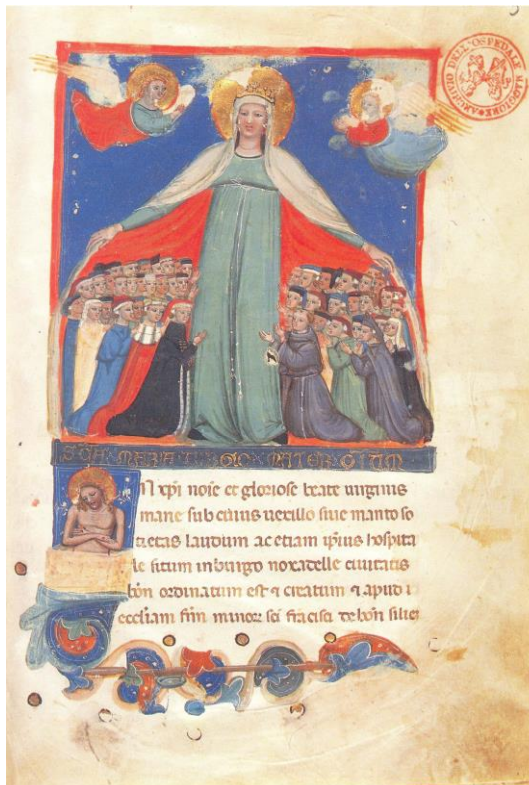 ARCHIVIO DELL'OSPEDALE MAGGIORE
MATER OIUM
N xpi noie et gloriose beate uirginis
marie sub cuius uexillo siue manto so
cietas laudum ac etiam ipsius hospita
le situm in burgo noxadelle ciuitatis
bon ordinatum est et citatum et apud
eccliam frm minor sci fracisci de bon silicet